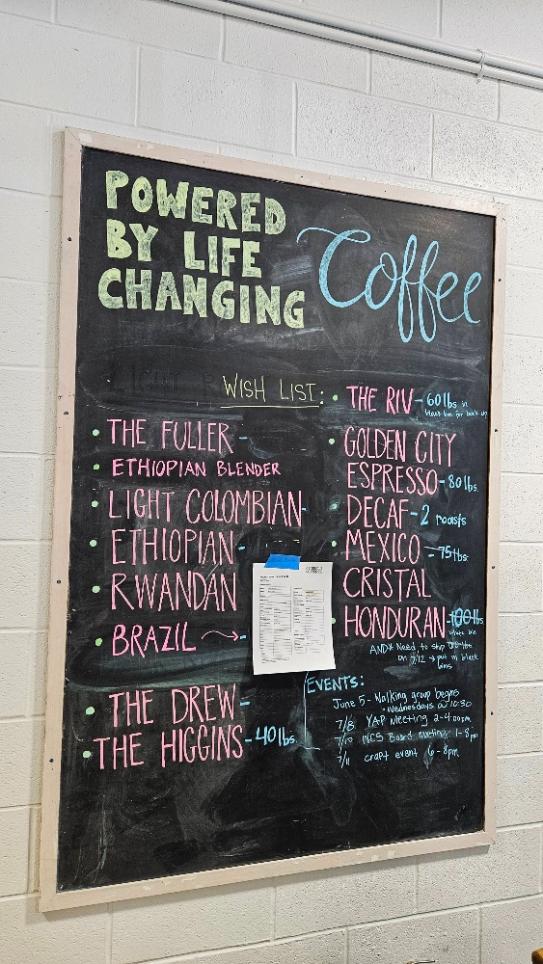 POWERED
BY LIFE
CHANGING
Coffee
WISH LIST:
• THE FULLER -
• ETHIOPIAN BLENDER
• LIGHT COLOMBIAN-
• ETHIOPIAN -
• RWANDAN
• BRAZIL → -
• THE DREW -
• THE HIGGINS - 40lbs.
• THE RIV - 60lbs in
• GOLDEN CITY
ESPRESSO - 80lbs.
• DECAF - 2 roasts
• MEXICO - 75lbs.
CRISTAL
• HONDURAN - 100lbs
AND* Need to ship
on 7/12 → put in black
bins
EVENTS:
June 5 - Walking group begins
• Wednesdays @ 10:30
7/8 YAP Meeting 2-4:00pm
7/10 Board meeting 1-8pm
7/11 craft event 6-8pm